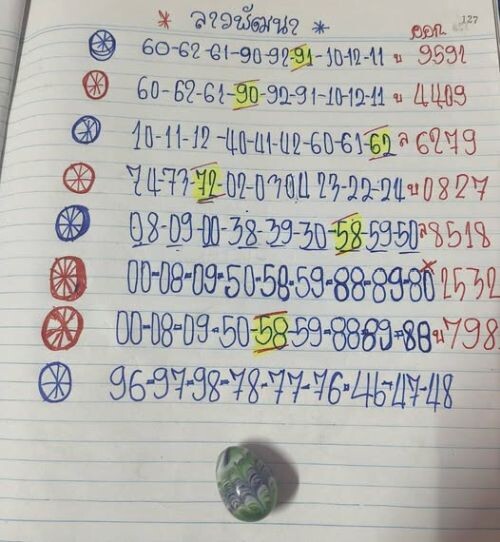 * ลาวพัฒนา * ออก 127
60-62-61-90-92-91-10-12-11 บ 9592
60-62-61-90-92-91-10-12-11 บ 4409
10-11-12-40-41-42-60-61-62 ล 6279
74-73-72-02-03 04 23-22-24 บ 0827
08-09-00-38-39-30-58-59-50 ล 8518
00-08-09-50-58-59-88-89-80 × 2532
00-08-09-50-58-59-88-89-80 บ 798
96-97-98-78-77-76-46-47-48